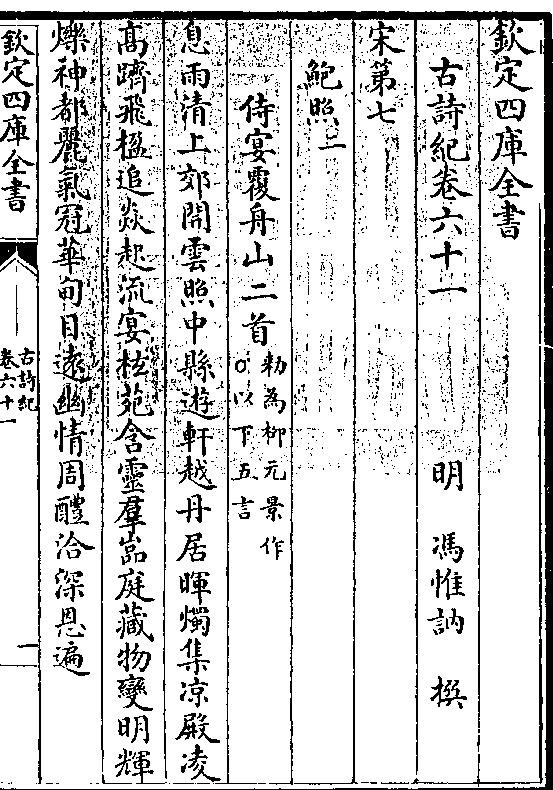 欽定四庫全書
古詩紀卷六十一　明　馮惟訥　撰
宋第七
鮑照二
侍宴覆舟山二首
勅為柳元景作
○以下五言
息雨清上郊開雲照中縣遊軒越丹居暉燭集凉殿凌
高躋飛楹追焱起流宴松苑含靈羣嵓庭藏物變明輝
爍神都麗氣冠華甸目遠幽情周醴洽深恩遍
欽定四庫全書
古詩紀
卷六十一
一